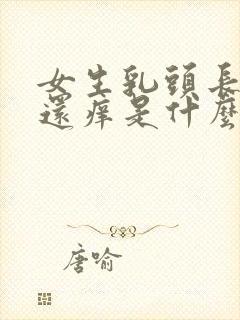 女生乳頭長
還痒是什麼
唐喻